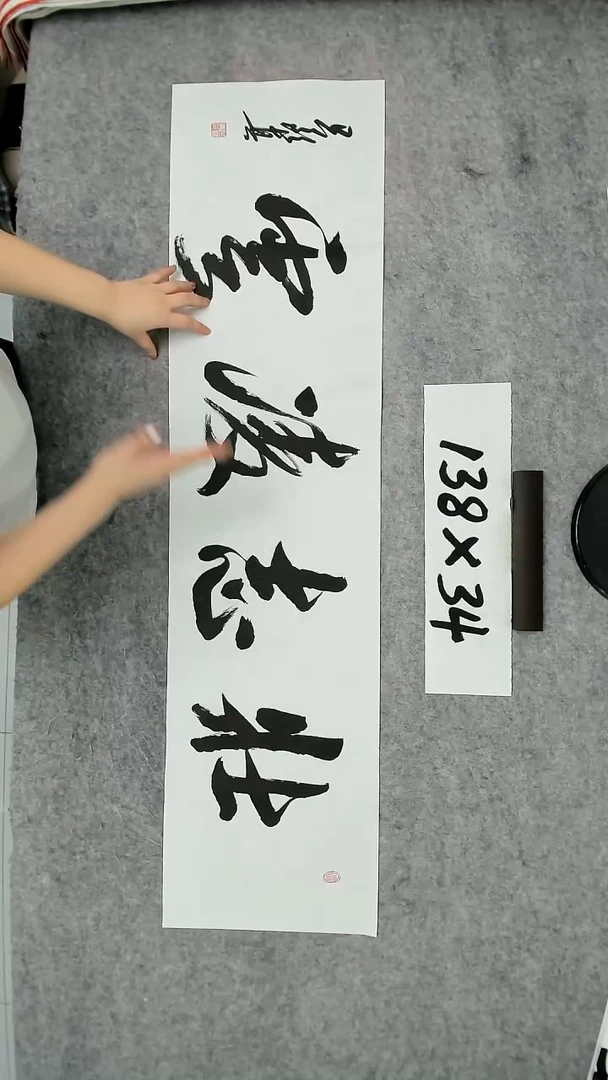 壮志凌雲
138×34